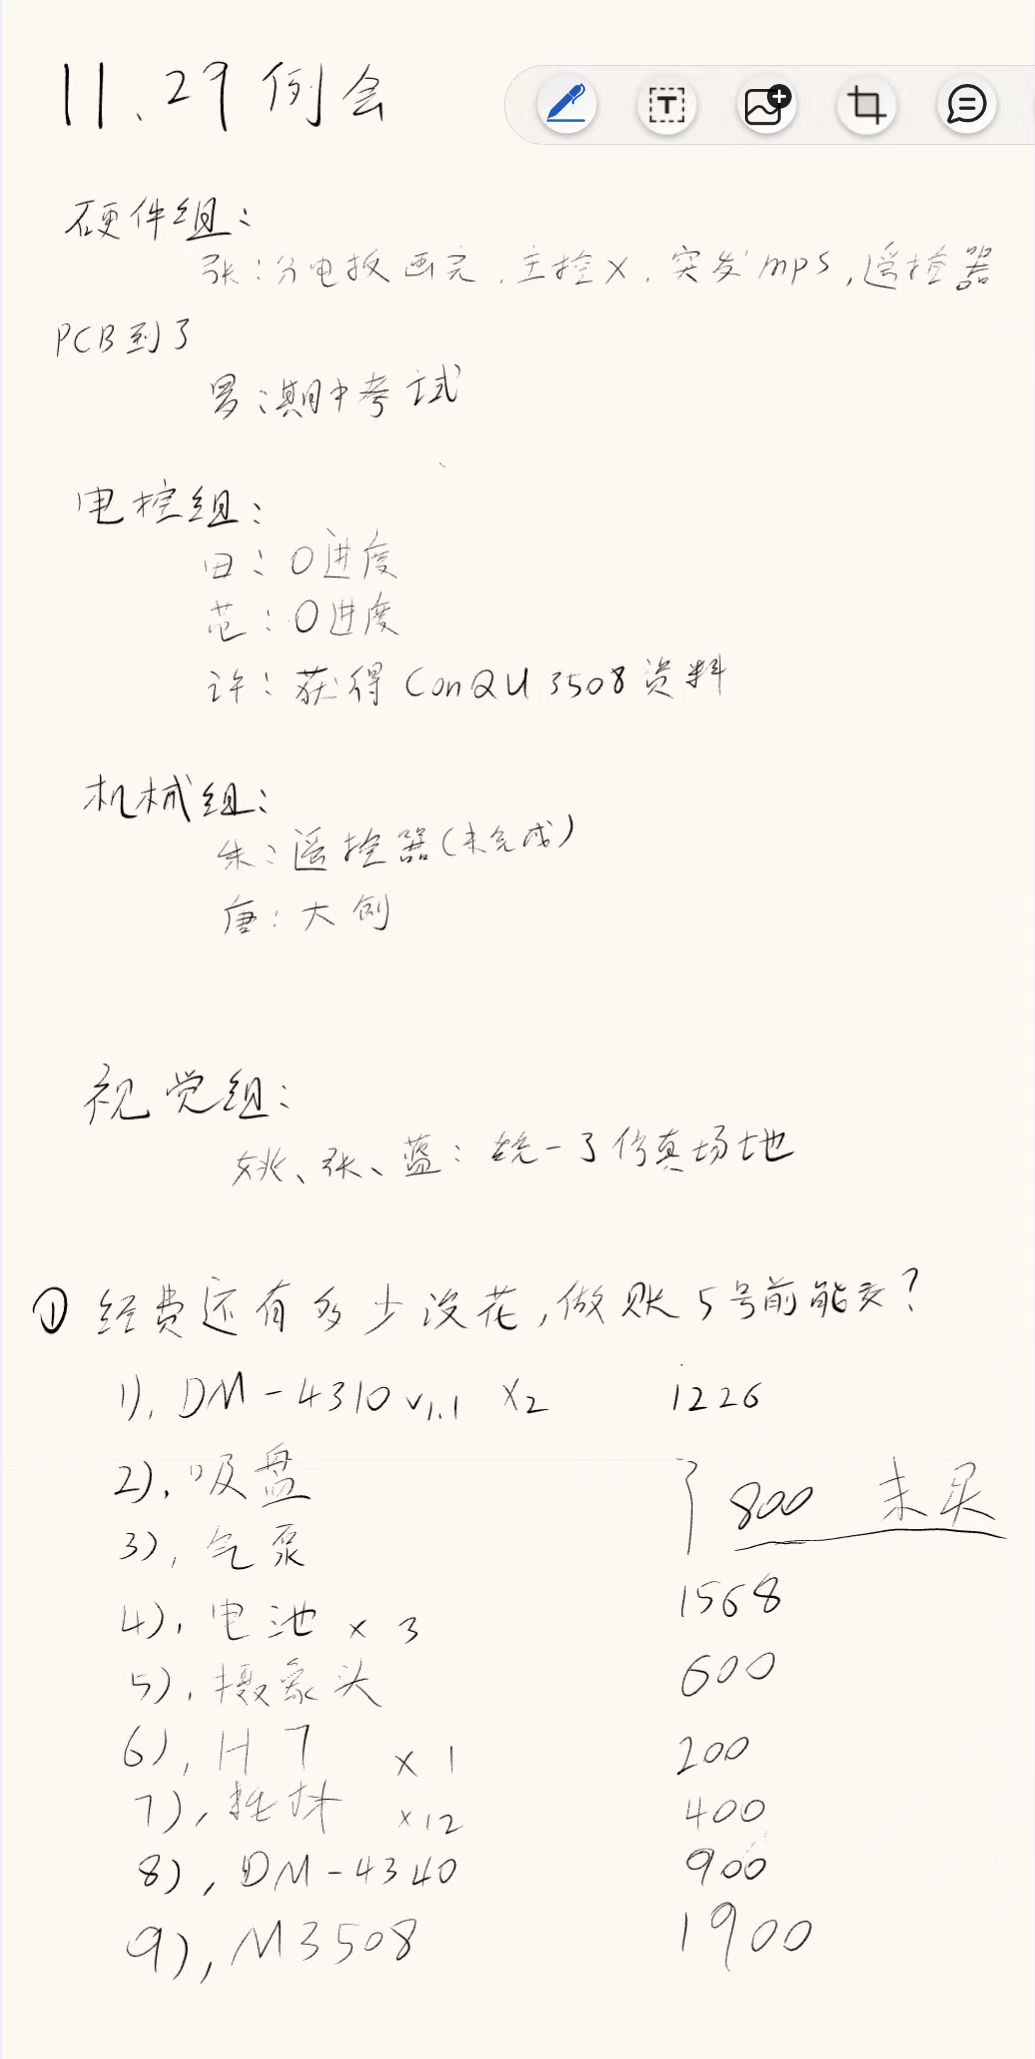 11.29例会
硬件组:
张:分电板画完,主控X,突发mps,遥控器
PCB到了
罗:期中考试
电控组:
田:0进度
范:0进度
许:获得ConQU 3508资料
机械组:
朱:遥控器(未完成)
唐:大创
视觉组:
姚、张、蓝:统一了仿真场地
① 经费还有多少没花,做账5号前能交?
1), DM-4310 v1.1 x2 1226
2), 吸盘
800 未买
3), 气泵
4), 电池 x 3 1568
5), 摄象头 600
6), H7 x 1 200
7), x12 400
8), DM-4340 900
9), M3508 1900